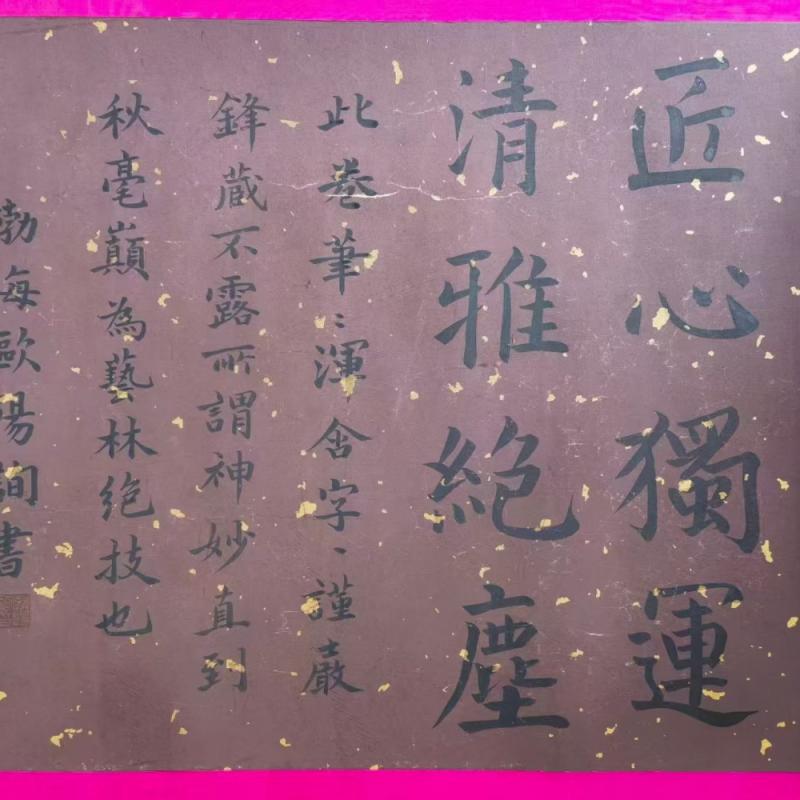 匠心獨運
清雅絕塵
此卷筆〻渾含字丶謹嚴
鋒蔵不露所謂神妙直到
秋毫巔為藝林絕技也
渤海歐陽詢書